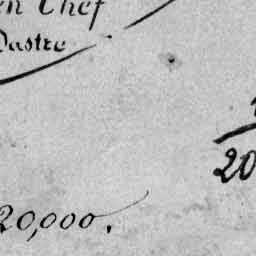 en Chef
Dastre
20
20,000.